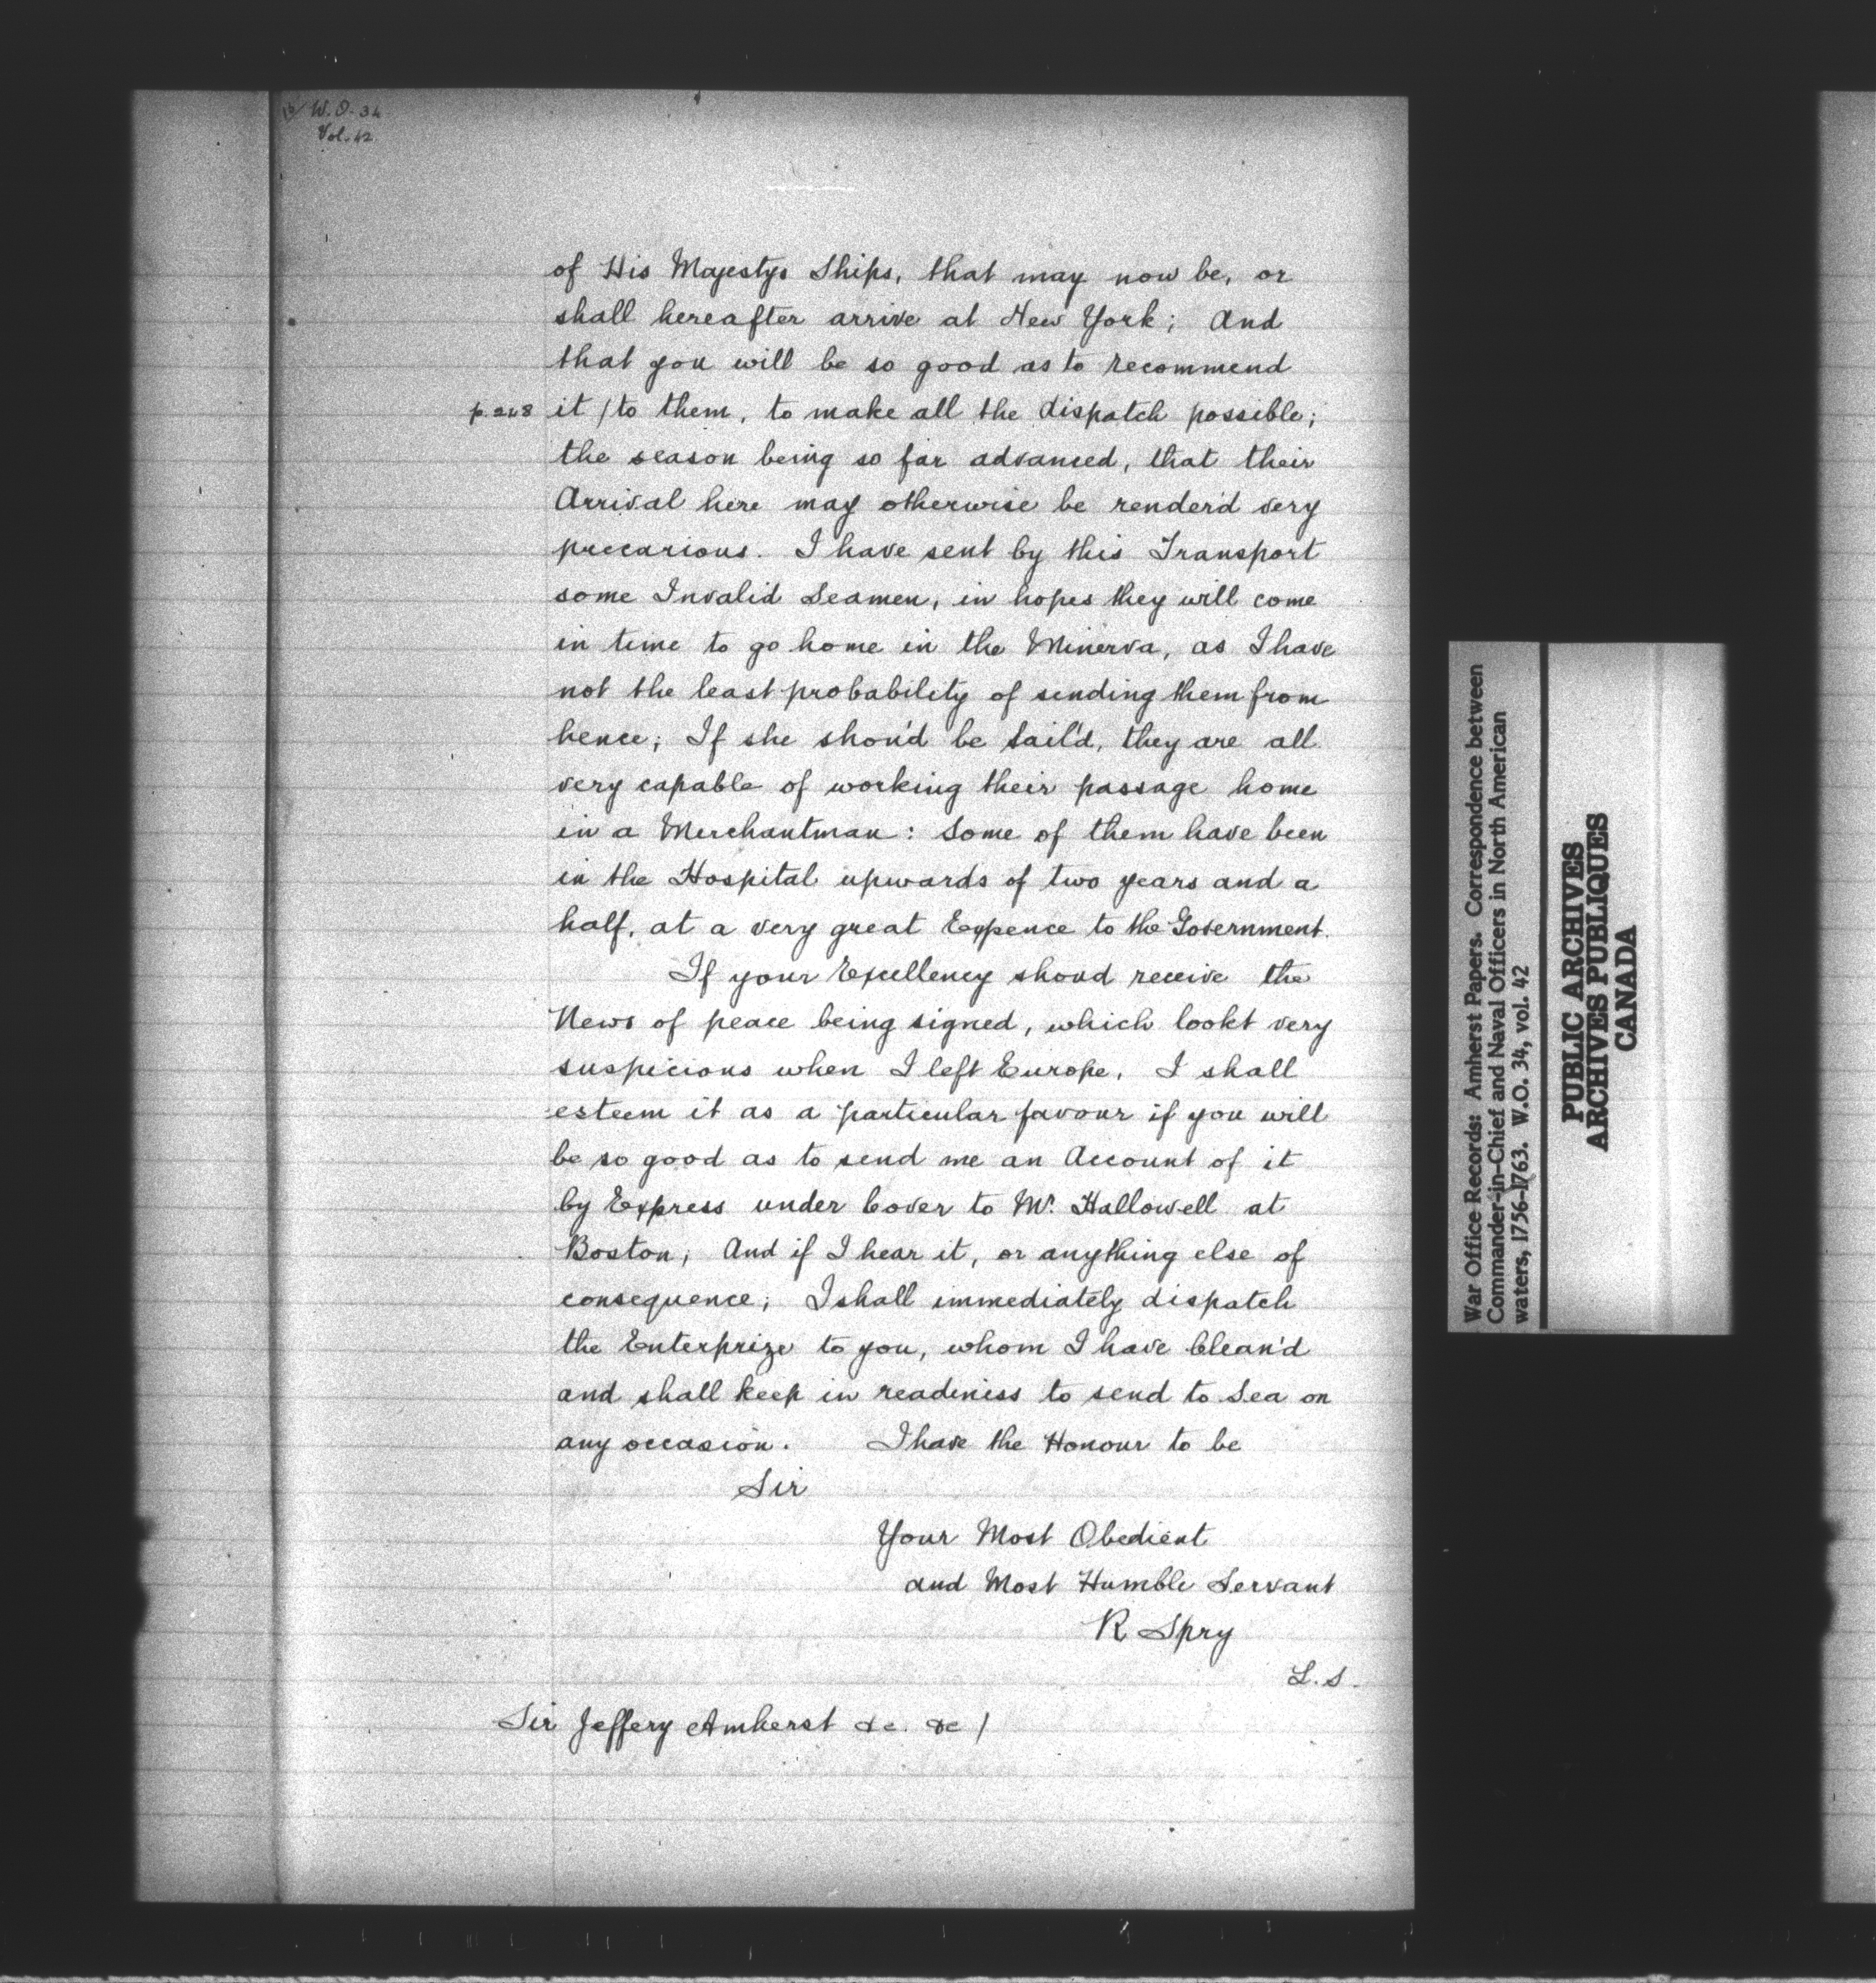 W.O. 34
Vol. 42
of His Majestys Ships, that may now be, or
shall hereafter arrive at New York; And
that you will be so good as to recommend
p.248 it / to them, to make all the dispatch possible;
the season being so far advanced, that their
Arrival here may otherwise be render'd very
precarious. I have sent by this Transport
some Invalid Seamen, in hopes they will come
in time to go home in the Minerva, as I have
not the least probability of sending them from
hence; If she shou'd be Sail'd, they are all
very capable of working their passage home
in a Merchantman: Some of them have been
in the Hospital upwards of two years and a
half, at a very great Expence to the Government.
If your Excellency shoud receive the
News of peace being signed, which lookt very
suspicious when I left Europe, I shall
esteem it as a particular favour if you will
be so good as to send me an Account of it
by Express under Cover to Mr. Hallowell at
Boston; And if I hear it, or anything else of
consequence; I shall immediately dispatch
the Enterprize to you, whom I have Clean'd
and shall keep in readiness to send to Sea on
any occasion. I have the Honour to be
Sir
Your Most Obedient
and Most Humble Servant
R Spry
L.S.
Sir Jeffery Amherst &c. &c /
War Office Records: Amherst Papers. Correspondence between
Commander-in-Chief and Naval Officers in North American
waters, 1756-1763. W.O. 34, vol. 42
PUBLIC ARCHIVES
ARCHIVES PUBLIQUES
CANADA